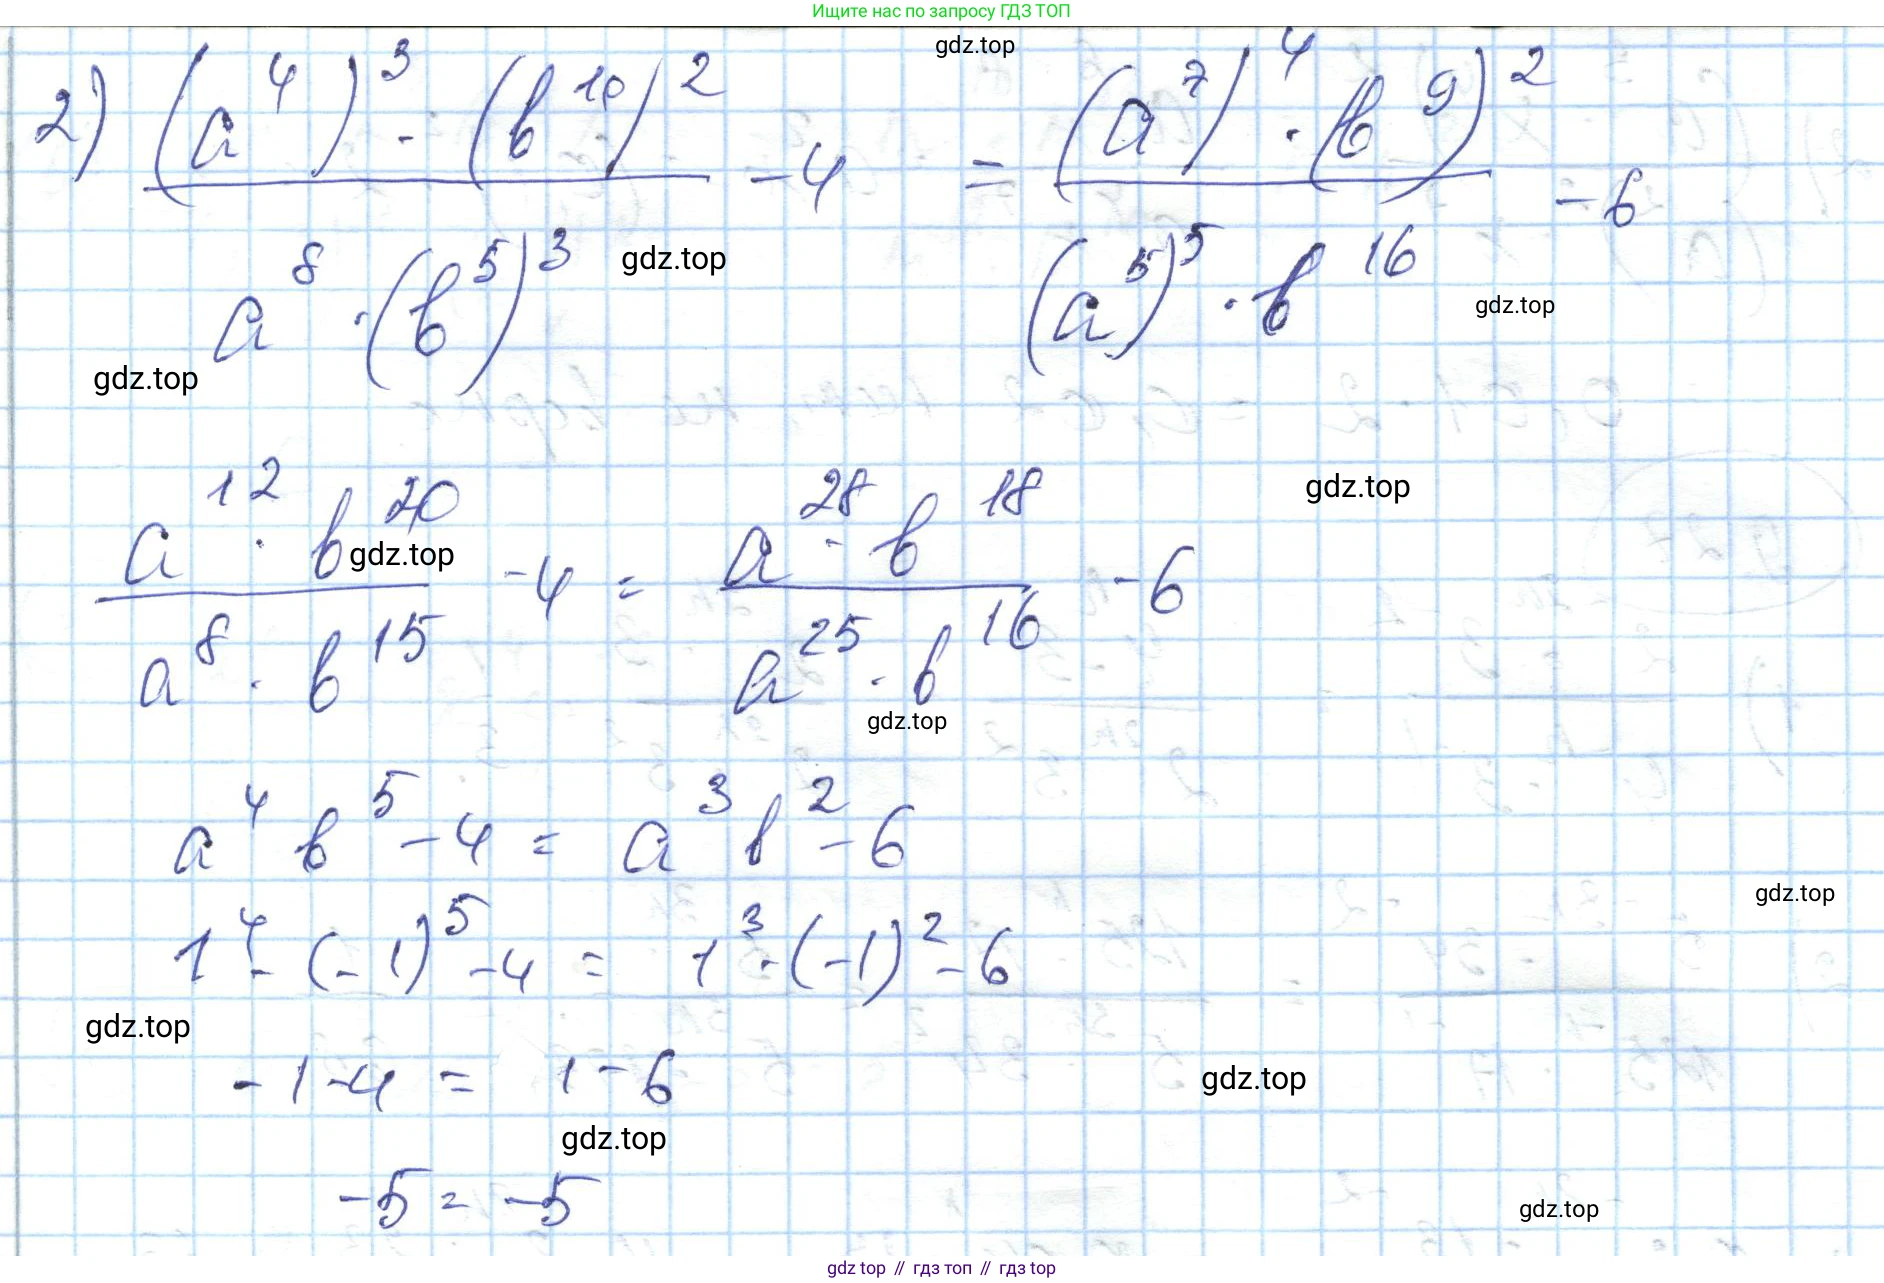 Ищите нас по запросу ГДЗ ТОП
gdz.top
2) (a⁴)³ · (b¹⁰)² / a⁸ · (b⁵)³ - 4 = (a⁷)⁴ · (b⁹)² / (a⁵)⁵ · b¹⁶ - 6
gdz.top
gdz.top
gdz.top
gdz.top
a¹² · b²⁰ / a⁸ · b¹⁵ - 4 = a²⁸ · b¹⁸ / a²⁵ · b¹⁶ - 6
gdz.top
gdz.top
a⁴ b⁵ - 4 = a³ b² - 6
gdz.top
1⁴ · (-1)⁵ - 4 = 1³ · (-1)² - 6
gdz.top
-1 - 4 = 1 - 6
gdz.top
gdz.top
-5 = -5
gdz.top
gdz top // гдз топ // гдз top